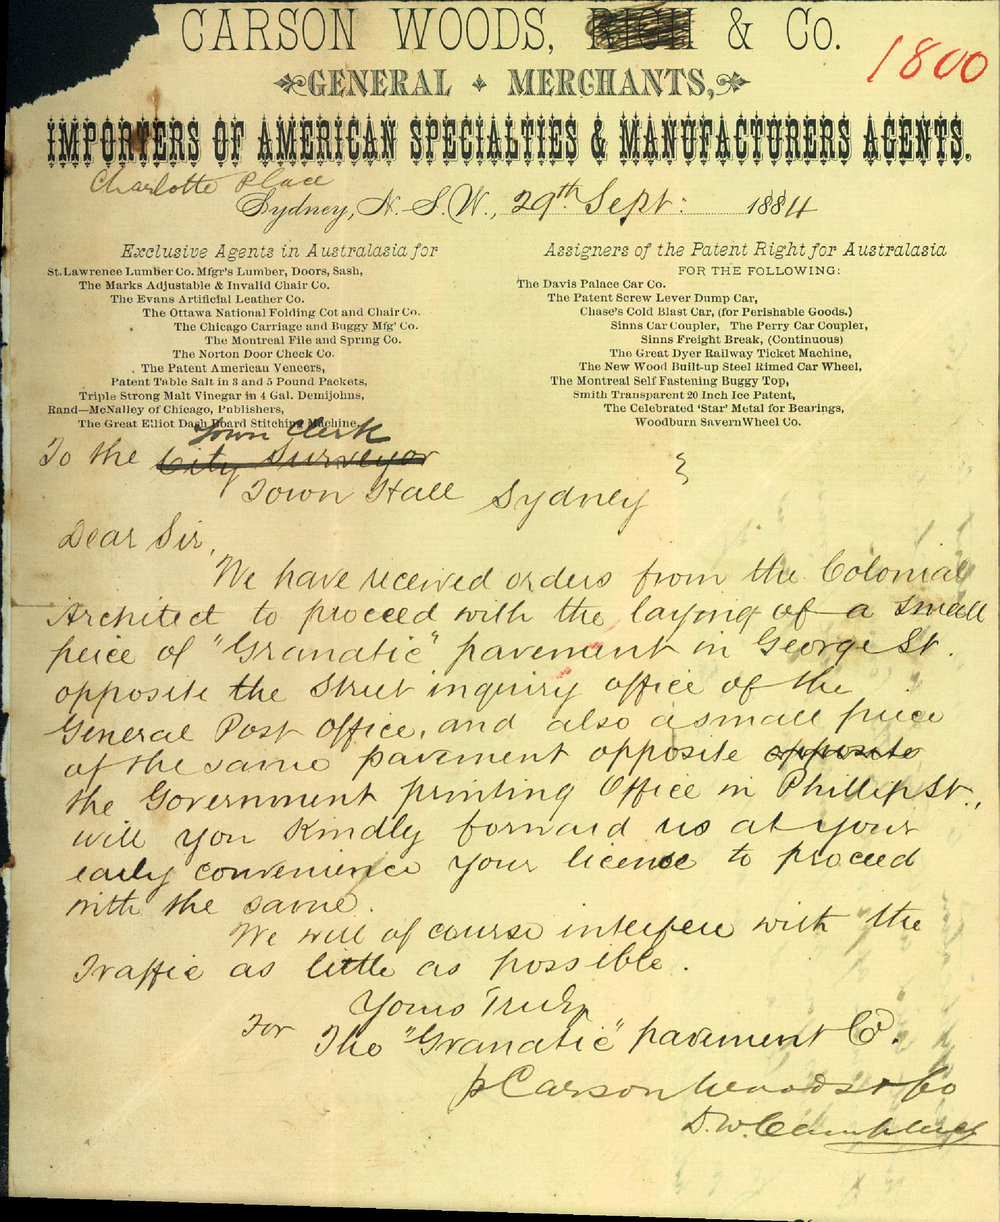 CARSON WOODS, RICH & Co.
1800
GENERAL MERCHANTS,
IMPORTERS OF AMERICAN SPECIALTIES & MANUFACTURERS AGENTS.
Charlotte Place
Sydney, N. S. W., 29th Sept: 1884
Exclusive Agents in Australasia for
St. Lawrence Lumber Co. Mfgr's Lumber, Doors, Sash,
The Marks Adjustable & Invalid Chair Co.
The Evans Artificial Leather Co.
The Ottawa National Folding Cot and Chair Co.
The Chicago Carriage and Buggy Mfg' Co.
The Montreal File and Spring Co.
The Norton Door Check Co.
The Patent American Veneers,
Patent Table Salt in 3 and 5 Pound Packets,
Triple Strong Malt Vinegar in 4 Gal. Demijohns,
Rand—McNalley of Chicago, Publishers,
The Great Elliot Dash Board Stitching Machine,
Assigners of the Patent Right for Australasia
FOR THE FOLLOWING:
The Davis Palace Car Co.
The Patent Screw Lever Dump Car,
Chase's Cold Blast Car, (for Perishable Goods.)
Sinns Car Coupler, The Perry Car Coupler,
Sinns Freight Break, (Continuous)
The Great Dyer Railway Ticket Machine,
The New Wood Built-up Steel Rimed Car Wheel,
The Montreal Self Fastening Buggy Top,
Smith Transparent 20 Inch Ice Patent,
The Celebrated 'Star' Metal for Bearings,
Woodburn SavernWheel Co.
Town Clerk
To the City Surveyor
Town Hall Sydney
Dear Sir,
We have received orders from the Colonial
Architect to proceed with the laying of a small
peice of "Granatic" pavement in George St.
opposite the Street inquiry office of the
General Post Office, and also a small piece
of the same pavement opposite opposite
the Government printing Office in Phillip St.,
will you Kindly forward us at your
early convenience your license to proceed
with the same.
We will of course interfere with the
Traffic as little as possible.
Yours Truly
For The "Granatic" pavement Co.
p Carson Woods & Co
D. W.